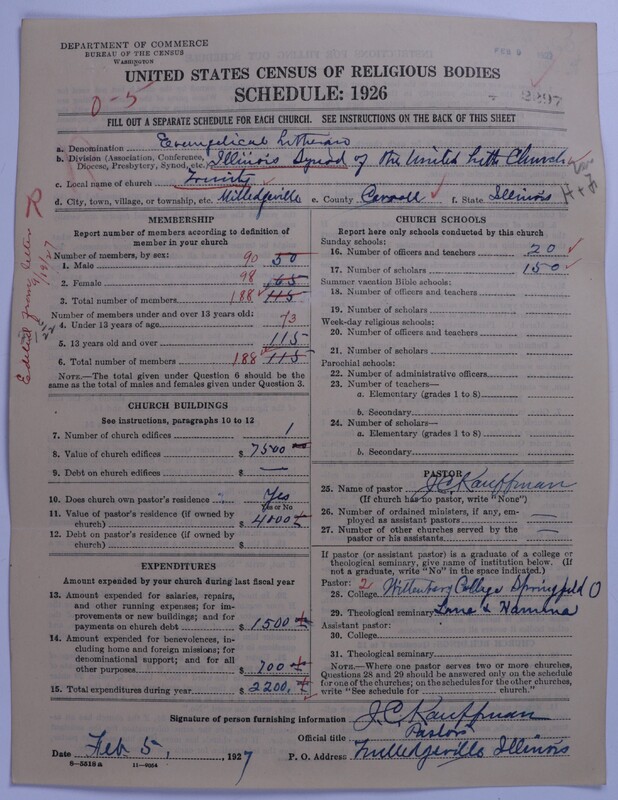 DEPARTMENT OF COMMERCE
BUREAU OF THE CENSUS
WASHINGTON
UNITED STATES CENSUS OF RELIGIOUS BODIES
SCHEDULE: 1926
0-5
2297
FILL OUT A SEPARATE SCHEDULE FOR EACH CHURCH. SEE INSTRUCTIONS ON THE BACK OF THIS SHEET
a. Denomination Evangelical Lutheran
b. Division (Association, Conference, Diocese, Presbytery, Synod, etc.) Illinois Synod of the United Luth Church
c. Local name of church Trinity
d. City, town, village, or township, etc. Milledgeville e. County Carroll f. State Illinois
MEMBERSHIP
Report number of members according to definition of
member in your church
Number of members, by sex:
1. Male 90 50
2. Female 98 65
3. Total number of members 188 115
Number of members under and over 13 years old:
4. Under 13 years of age 73
5. 13 years old and over 115
6. Total number of members 188 115
NOTE.—The total given under Question 6 should be
the same as the total of males and females given under Question 3.
CHURCH BUILDINGS
See instructions, paragraphs 10 to 12
7. Number of church edifices 1
8. Value of church edifices $ 7500
9. Debt on church edifices $ —
10. Does church own pastor's residence? Yes
Yes or No
11. Value of pastor's residence (if owned by
church) $ 4000
12. Debt on pastor's residence (if owned by
church) $
EXPENDITURES
Amount expended by your church during last fiscal year
13. Amount expended for salaries, repairs,
and other running expenses; for im-
provements or new buildings; and for
payments on church debt $ 1500
14. Amount expended for benevolences, in-
cluding home and foreign missions; for
denominational support; and for all
other purposes $ 700
15. Total expenditures during year $ 2200
CHURCH SCHOOLS
Report here only schools conducted by this church
Sunday schools:
16. Number of officers and teachers 20
17. Number of scholars 150
Summer vacation Bible schools:
18. Number of officers and teachers
19. Number of scholars
Week-day religious schools:
20. Number of officers and teachers
21. Number of scholars
Parochial schools:
22. Number of administrative officers
23. Number of teachers—
a. Elementary (grades 1 to 8)
b. Secondary
24. Number of scholars—
a. Elementary (grades 1 to 8)
b. Secondary
PASTOR
25. Name of pastor J. C. Kauffman
(If church has no pastor, write "None")
26. Number of ordained ministers, if any, em-
ployed as assistant pastors —
27. Number of other churches served by the
pastor or his assistants —
If pastor (or assistant pastor) is a graduate of a college or
theological seminary, give name of institution below. (If
not a graduate, write "No" in the space indicated.)
Pastor: 2
28. College Wittenberg College Springfield O
29. Theological seminary
Assistant pastor:
30. College
31. Theological seminary
NOTE.—Where one pastor serves two or more churches,
Questions 28 and 29 should be answered only on the schedule
for one of the churches; on the schedules for the other churches,
write "See schedule for church."
Signature of person furnishing information J. C. Kauffman
Official title Pastor
Date Feb 5, 1927 P. O. Address Milledgeville Illinois
8-5518a 11-9054